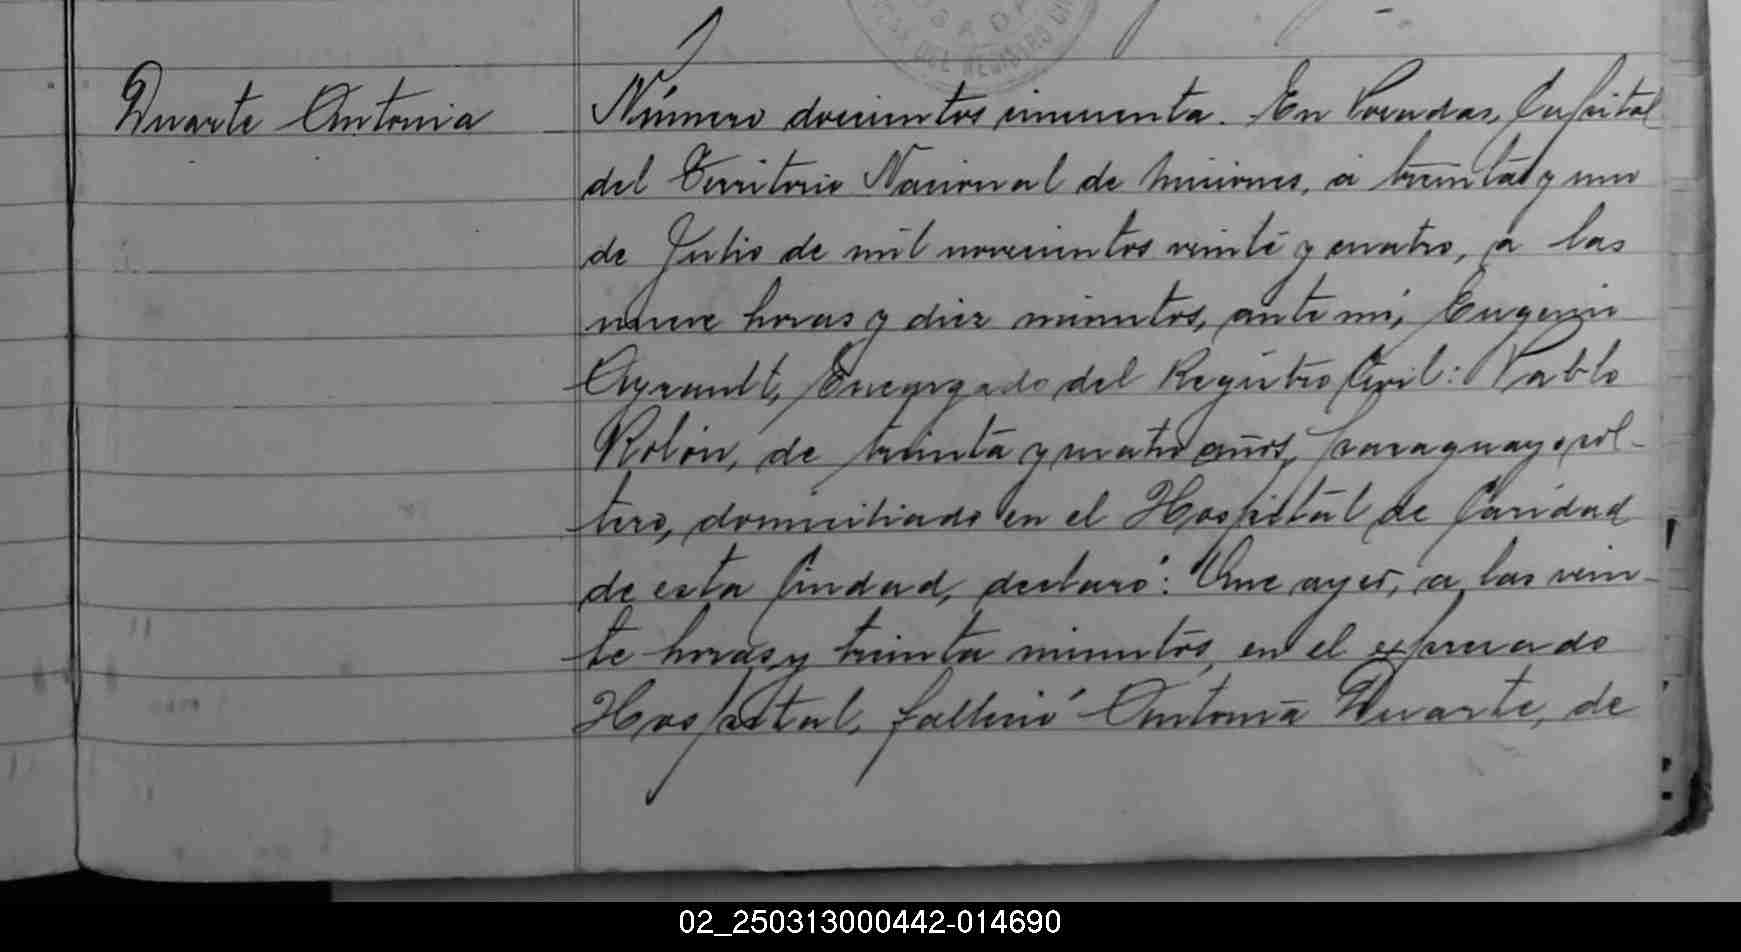 Duarte Antonia
Número doscientos cincuenta. En Posadas, Capital
del Territorio Nacional de Misiones, a treinta y uno
de Julio de mil novecientos veinte y cuatro, a las
nueve horas y diez minutos, ante mí, Eugenio
Ayrault, Encargado del Registro Civil: Pablo
Rolón, de treinta y cuatro años, paraguayo, sol-
tero, domiciliado en el Hospital de Caridad
de esta Ciudad, declaró: Que ayer, a las vein-
te horas y treinta minutos, en el expresado
Hospital, falleció Antonia Duarte, de
02_250313000442-014690